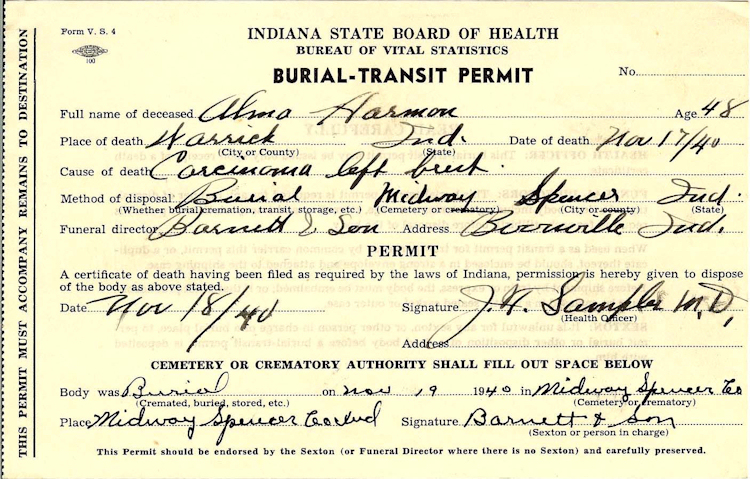 Form V. S. 4
100
INDIANA STATE BOARD OF HEALTH
BUREAU OF VITAL STATISTICS
BURIAL-TRANSIT PERMIT
No.
Full name of deceased Alma Harmon Age 48
Place of death Warrick Ind. Date of death Nov 17/40
(City or County) (State)
Cause of death Carcinoma left brest.
Method of disposal Burial Midway Spencer Ind.
(Whether burial, cremation, transit, storage, etc.) (Cemetery or crematory) (City or county) (State)
Funeral director Barnett & Son Address Boonville Ind.
PERMIT
A certificate of death having been filed as required by the laws of Indiana, permission is hereby given to dispose
of the body as above stated.
Date Nov 18/40 Signature Sampler M.D.
(Health Officer)
Address
CEMETERY OR CREMATORY AUTHORITY SHALL FILL OUT SPACE BELOW
Body was Burial on Nov 19 1940 in Midway Spencer Co
(Cremated, buried, stored, etc.) (Cemetery or crematory)
Place Midway Spencer Co Ind Signature Barnett & Son
(Sexton or person in charge)
This Permit should be endorsed by the Sexton (or Funeral Director where there is no Sexton) and carefully preserved.
THIS PERMIT MUST ACCOMPANY REMAINS TO DESTINATION